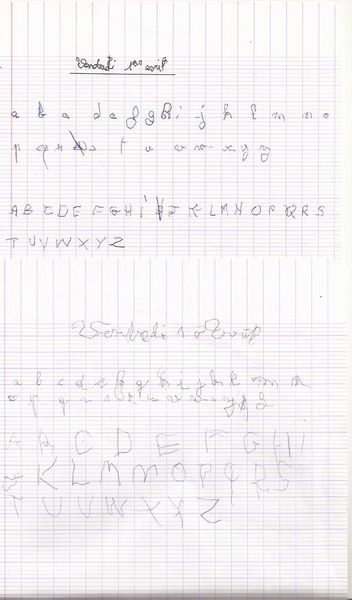 Vendredi 1er avril
a b c d e f g h i j k l m n o
p q r s t u v w x y z
A B C D E F G H i J K L M N O P Q R S
T U V W X Y Z
a b c d e f g h i j k m n
o p q r s t u v w x y z
A B C D E F G H I
J K L M N O P Q R S
T U V W X Y Z